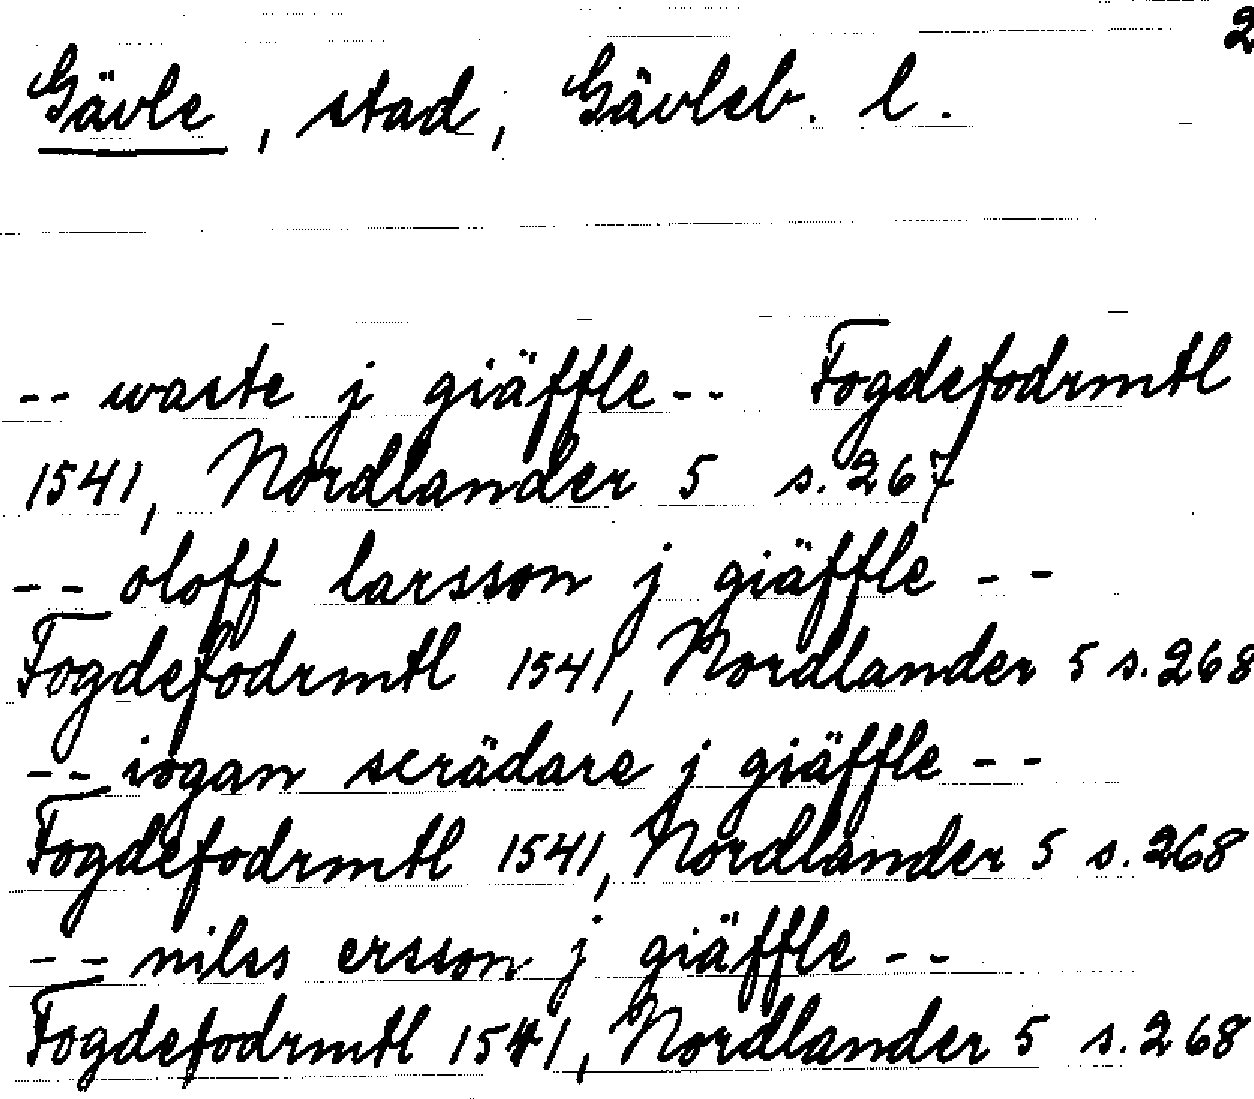 2
Gävle, stad, Gävleb. l.
-- waste j giäffle -- Fogdefodrmtl
1541, Nordlander 5 s. 267
-- oloff larsson j giäffle --
Fogdefodrmtl 1541, Nordlander 5 s. 268
-- iogan scrädare j giäffle --
Fogdefodrmtl 1541, Nordlander 5 s. 268
-- nilss ersson j giäffle --
Fogdefodrmtl 1541, Nordlander 5 s. 268